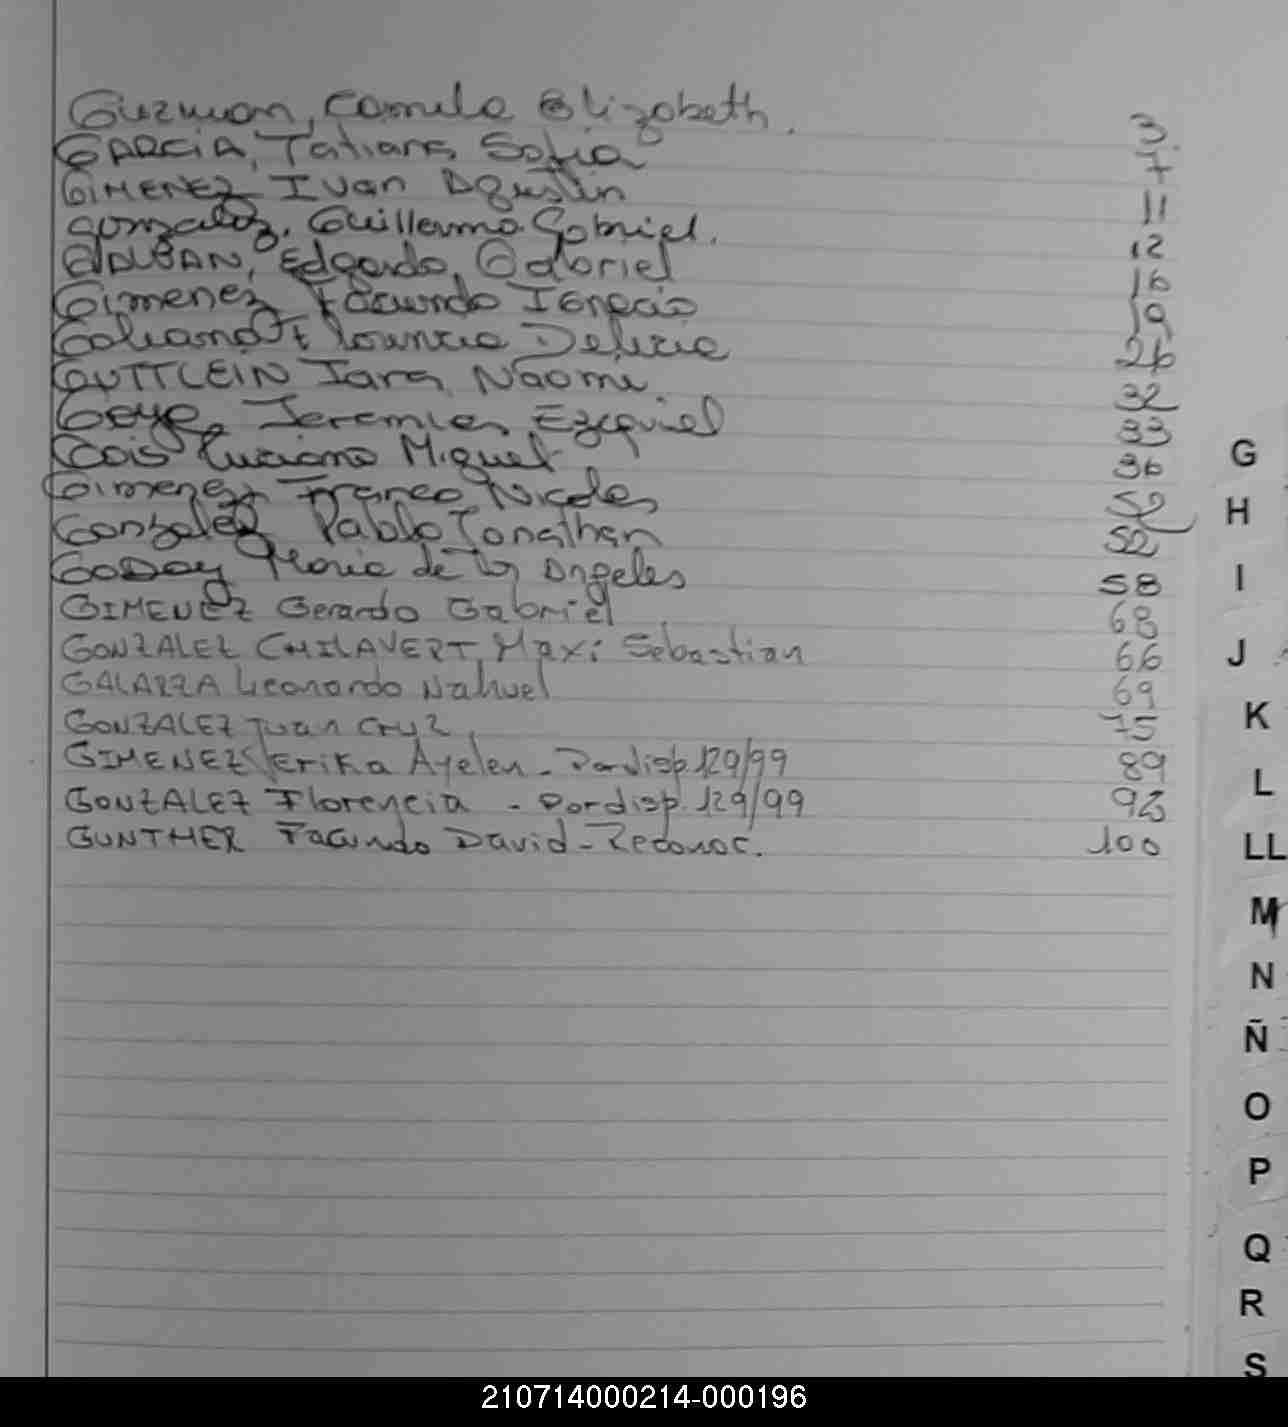 Guzman, Camila Elizabeth. 3
GARCIA, Tatiana Sofia 7
GIMENEZ Ivan Agustin 11
gonzalez, Guillermo Gabriel. 12
GALBAN, Edgardo, Gabriel 16
Gimenez Facundo Ignacio 19
Galiano Florencia Delicia 26
GUTTLEIN Iara Naomi 32
Goye Jeremias Ezequiel 33
Gois Luciano Miguel 36
Gimenez Franco Nicolas 52
Gonzalez Pablo Jonathan 52
GODOY Maria de los Angeles 58
GIMENEZ Gerardo Gabriel 68
GONZALEZ CHILAVERT, Maxi Sebastian 66
GALARZA Leonardo Nahuel 69
GONZALEZ Juan Cruz 75
GIMENEZ Erika Ayelen - Por disp. 129/99 89
GONZALEZ Florencia - Por disp. 129/99 93
GUNTHER Facundo David - Reconoc. 100
G
H
I
J
K
L
LL
M
N
Ñ
O
P
Q
R
S
210714000214-000196